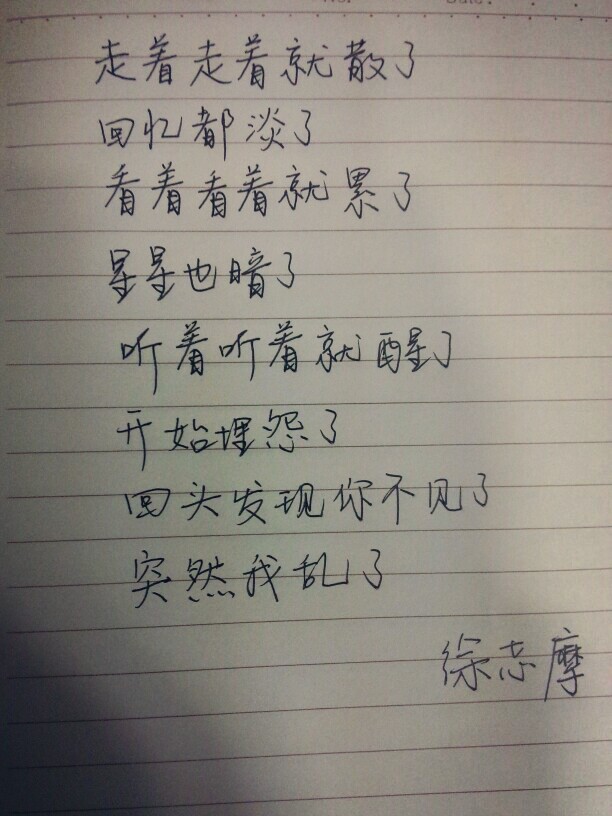 走着走着就散了
回忆都淡了
看着看着就累了
星星也暗了
听着听着就醒了
开始埋怨了
回头发现你不见了
突然我乱了
徐志摩